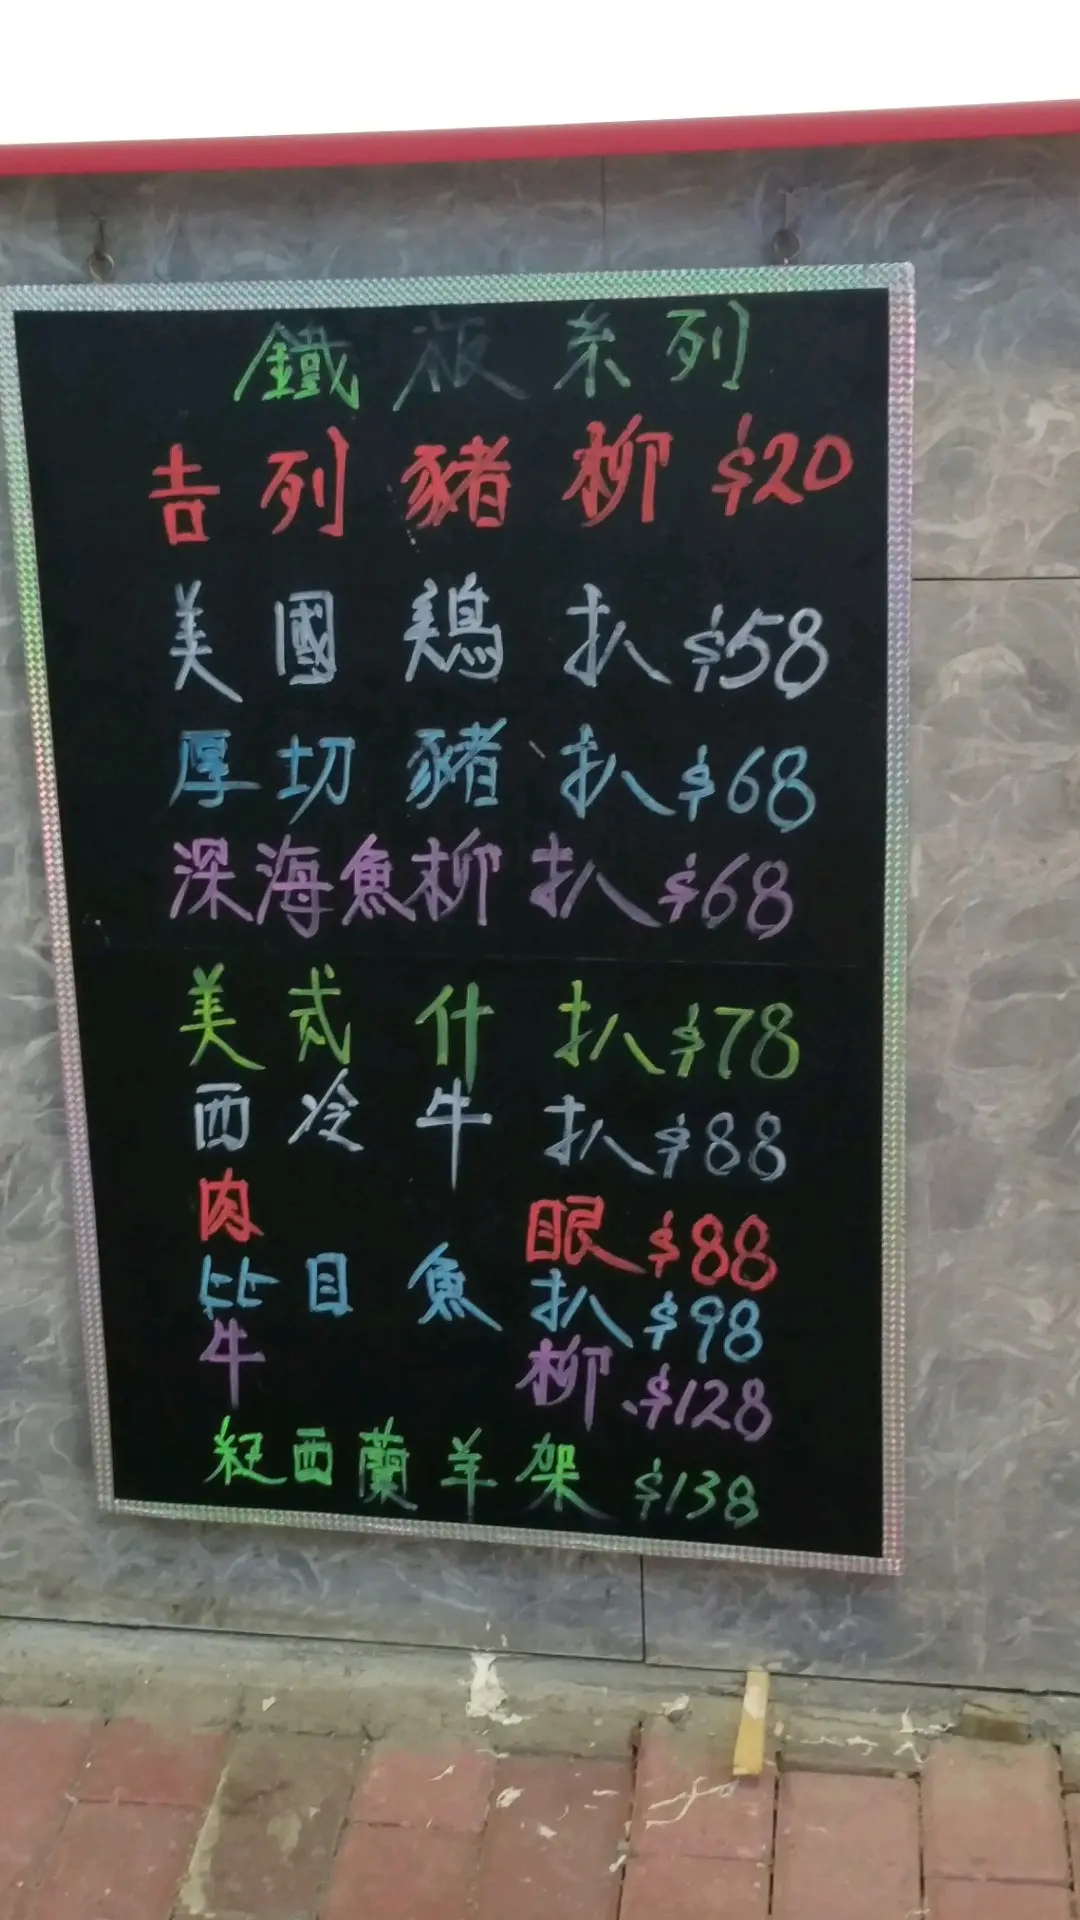 鐵板系列
吉列豬柳 $20
美國鷄扒 $58
厚切豬扒 $68
深海魚柳扒 $68
美式什扒 $78
西冷牛扒 $88
肉眼 $88
比目魚扒 $98
牛柳 $128
紐西蘭羊架 $138